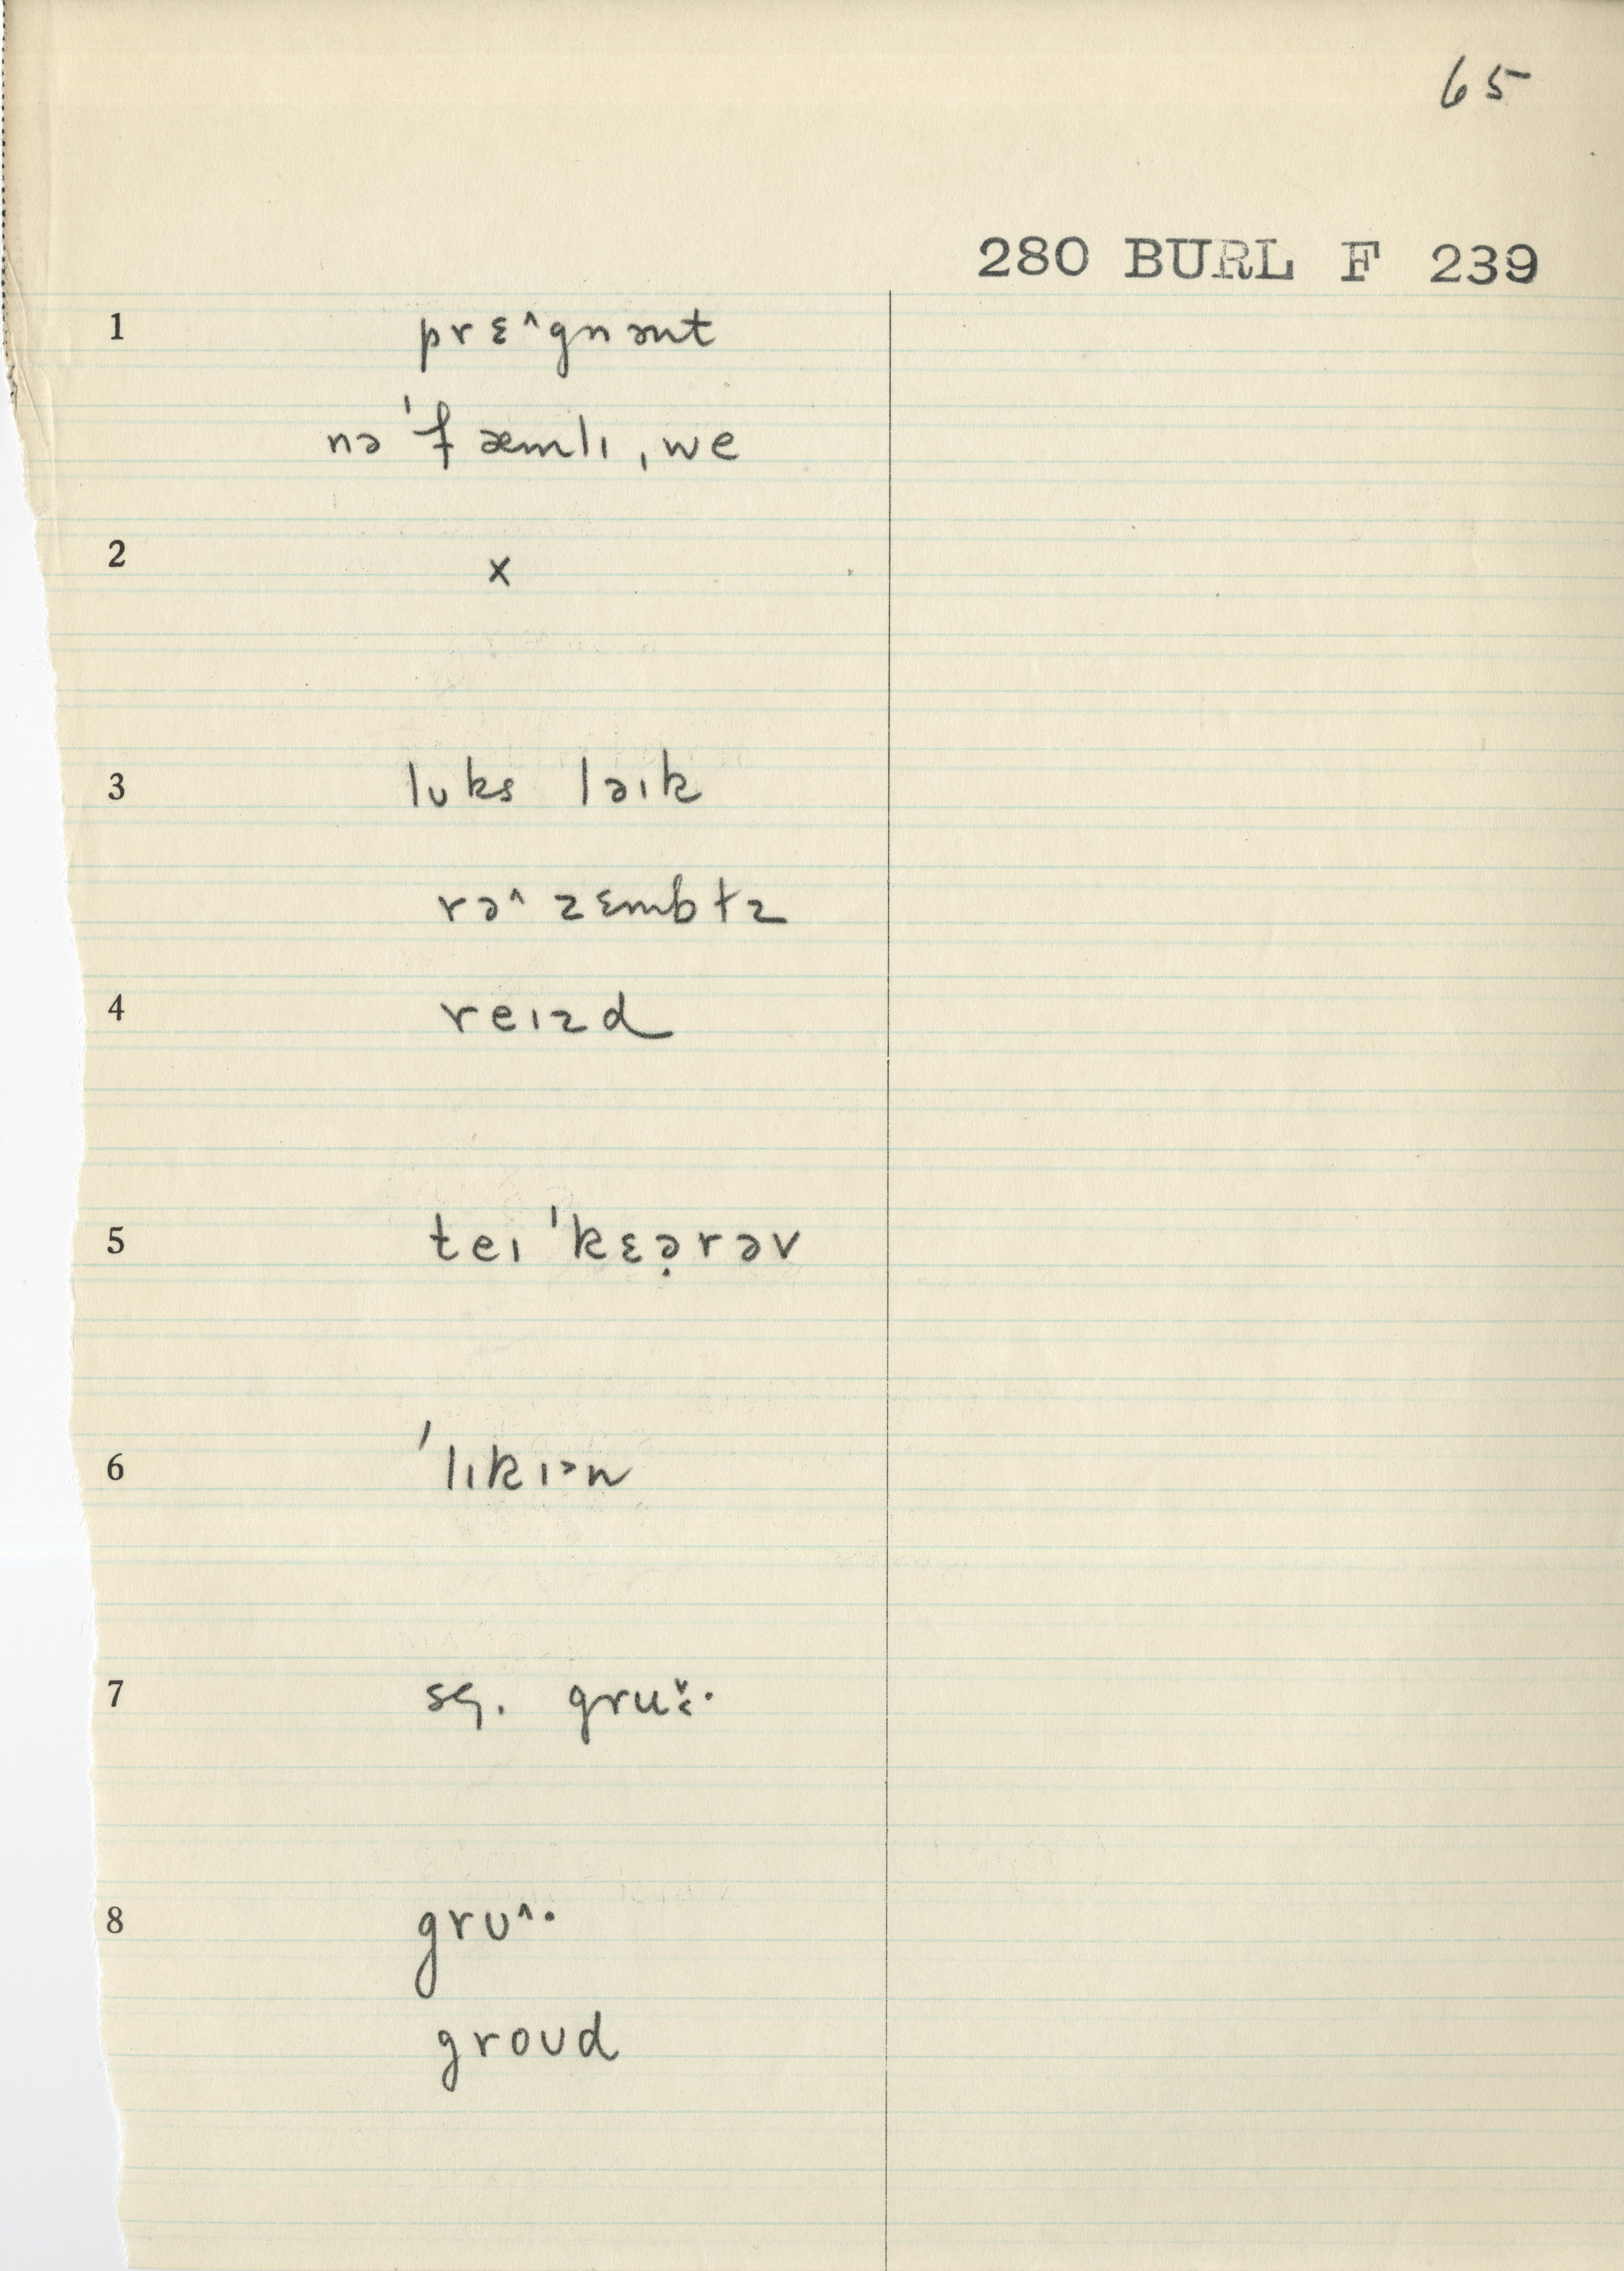 65
280 BURL F 239
1 prɛ^gnənt
nə 'fæmlɪ ˌwe
2 x
3 lʊks ləɪk
rə^zɛmbɫz
4 reɪzd
5 teɪ 'kɛə̣rəv
6 'lɪkɪən
7 sq. gruˇ˔·
8 grʊ^·
groʊd